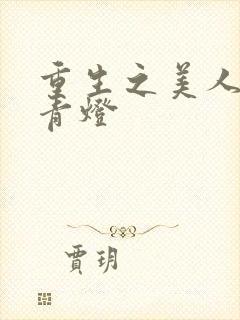 重生之美人
青燈
賈玥